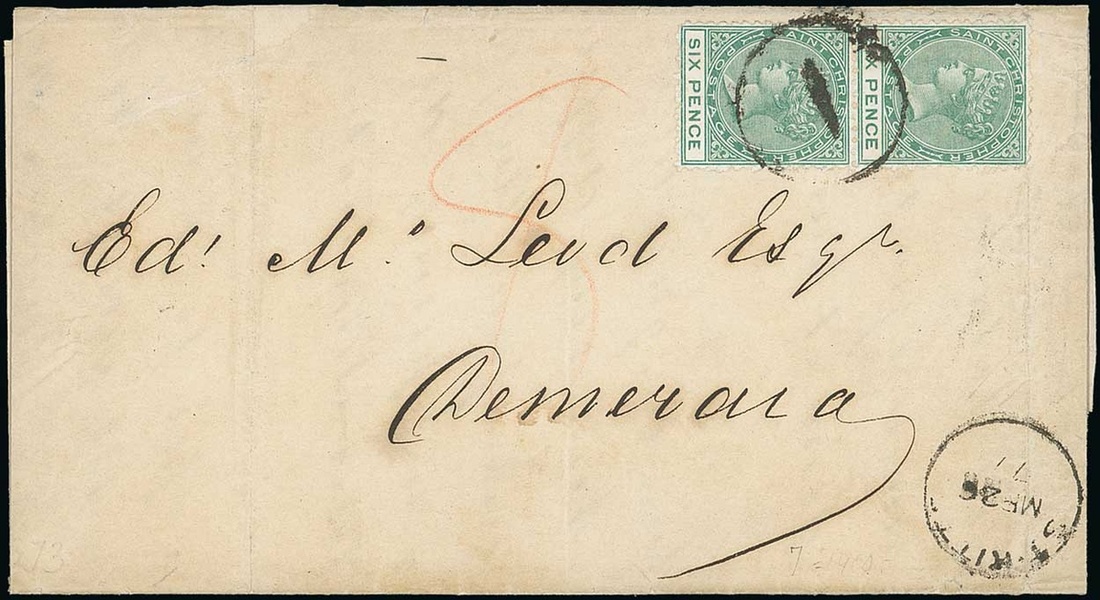 SIX PENCE
SAINT CHRISTOPHER
POSTAGE
SIX PENCE
SAINT CHRISTOPHER
POSTAGE
1
8
Edd. Mc. Leod Esqr.
Demerara
ST. KITTS
MR 28
73